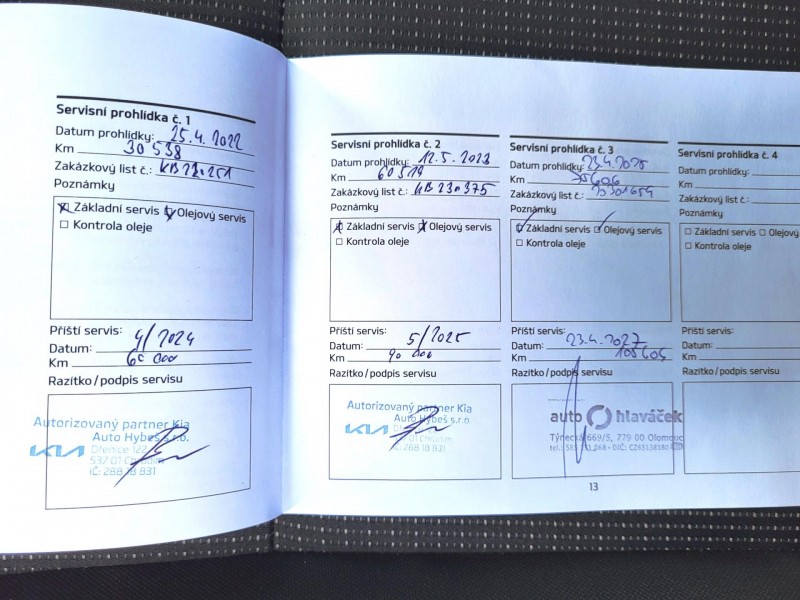 Servisní prohlídka č. 1
Datum prohlídky: 25.4.2022
Km 30 538
Zakázkový list č.: KB22o251
Poznámky
Základní servis Olejový servis
Kontrola oleje
Příští servis:
Datum: 4/2024
Km 60 000
Razítko/podpis servisu
Autorizovaný partner Kia
Auto Hybeš s.r.o.
KIA Dřenice 122
537 01 Chrudim
IČ: 288 18 831
Servisní prohlídka č. 2
Datum prohlídky: 12.5.2023
Km 60 519
Zakázkový list č.: KB23o375
Poznámky
Základní servis Olejový servis
Kontrola oleje
Příští servis:
Datum: 5/2025
Km 90 000
Razítko/podpis servisu
Autorizovaný partner Kia
Auto Hybeš s.r.o.
KIA
537 01 Chrudim
IČ: 288 18 831
Servisní prohlídka č. 3
Datum prohlídky: 23.4.2025
Km 75606
Zakázkový list č.:
Poznámky
Základní servis Olejový servis
Kontrola oleje
Příští servis:
Datum: 23.4.2027
Km 105606
Razítko/podpis servisu
auto hlaváček
Týnecká 669/5, 779 00 Olomouc
DIČ: CZ63138180
Servisní prohlídka č. 4
Datum prohlídky:
Km
Zakázkový list č.:
Poznámky
Základní servis Olejov
Kontrola oleje
Příští servis:
Datum:
Km
Razítko/podpis servisu
13